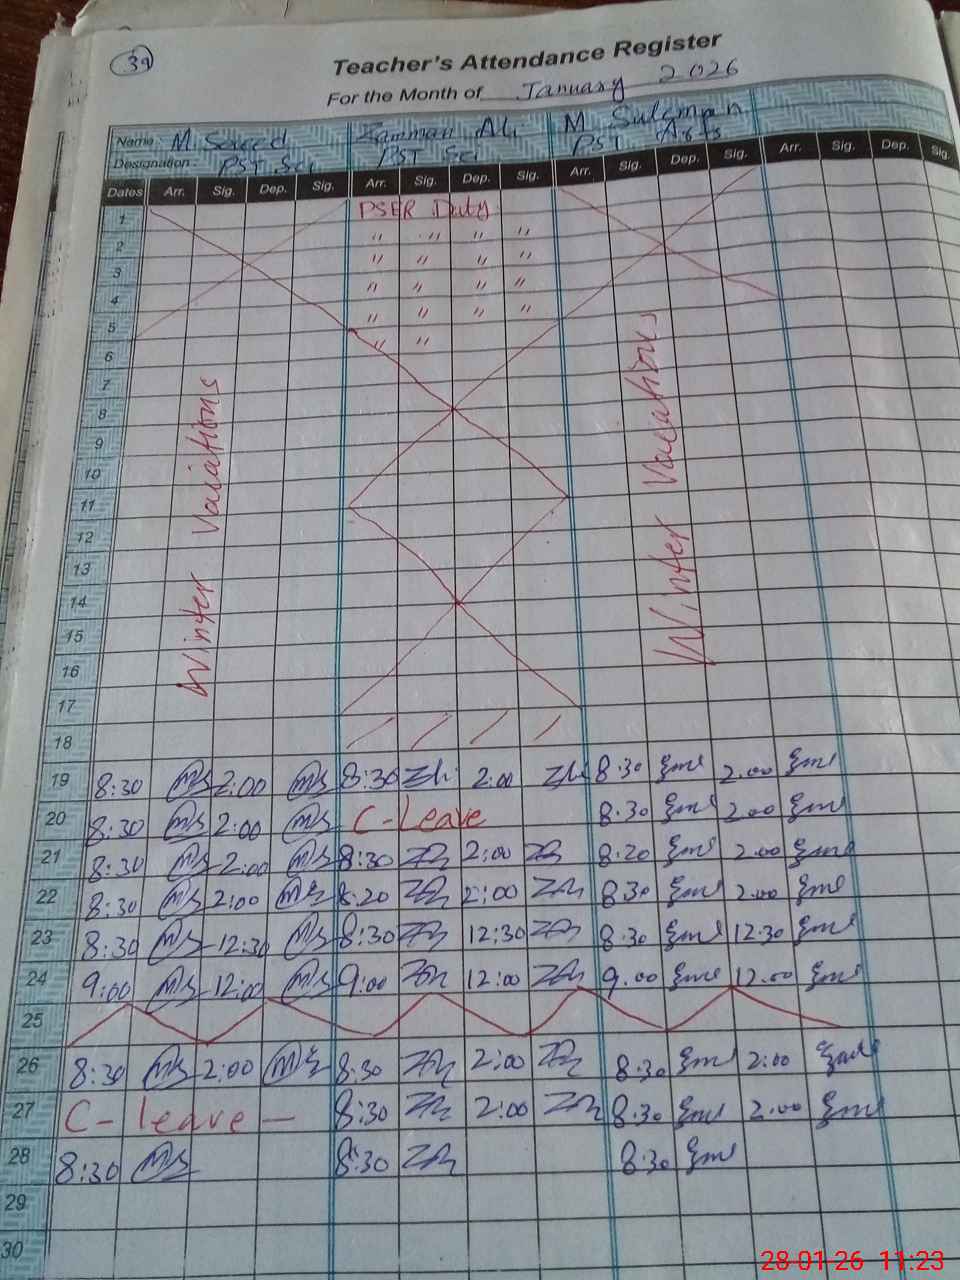 39
Teacher's Attendance Register
For the Month of January 2026
Name: M Saeed Zamman Ali M Suleman
Designation: PST Sci PST Sci PST Arts
Dates Arr. Sig. Dep. Sig. Arr. Sig. Dep. Sig. Arr. Sig. Dep. Sig. Arr. Sig. Dep. Sig.
1 PSER Duty
2 " " " "
3 " " " "
4 " " " "
5 " " " "
6 " "
7
8
9
10
11
12
13
14
15
16
17
18
Winter Vacations
Winter Vacations
19 8:30 MS 2:00 MS 8:30 ZA 2:00 ZA 8:30 2.00
20 8:30 MS 2:00 MS C-Leave 8.30 2.00
21 8:30 MS 2:00 MS 8:30 ZA 2:00 ZA 8:20 2.00
22 8:30 MS 2:00 MS 8:20 ZA 2:00 ZA 8.30 2.00
23 8:30 MS 12:30 MS 8:30 ZA 12:30 ZA 8.30 12.30
24 9:00 MS 12:00 MS 9:00 ZA 12:00 ZA 9.00 12.00
25
26 8:30 MS 2:00 MS 8:30 ZA 2:00 ZA 8.30 2.00
27 C-leave- 8:30 ZA 2:00 ZA 8.30 2.00
28 8:30 MS 8:30 ZA 8.30
29
30
28-01-26 11:23